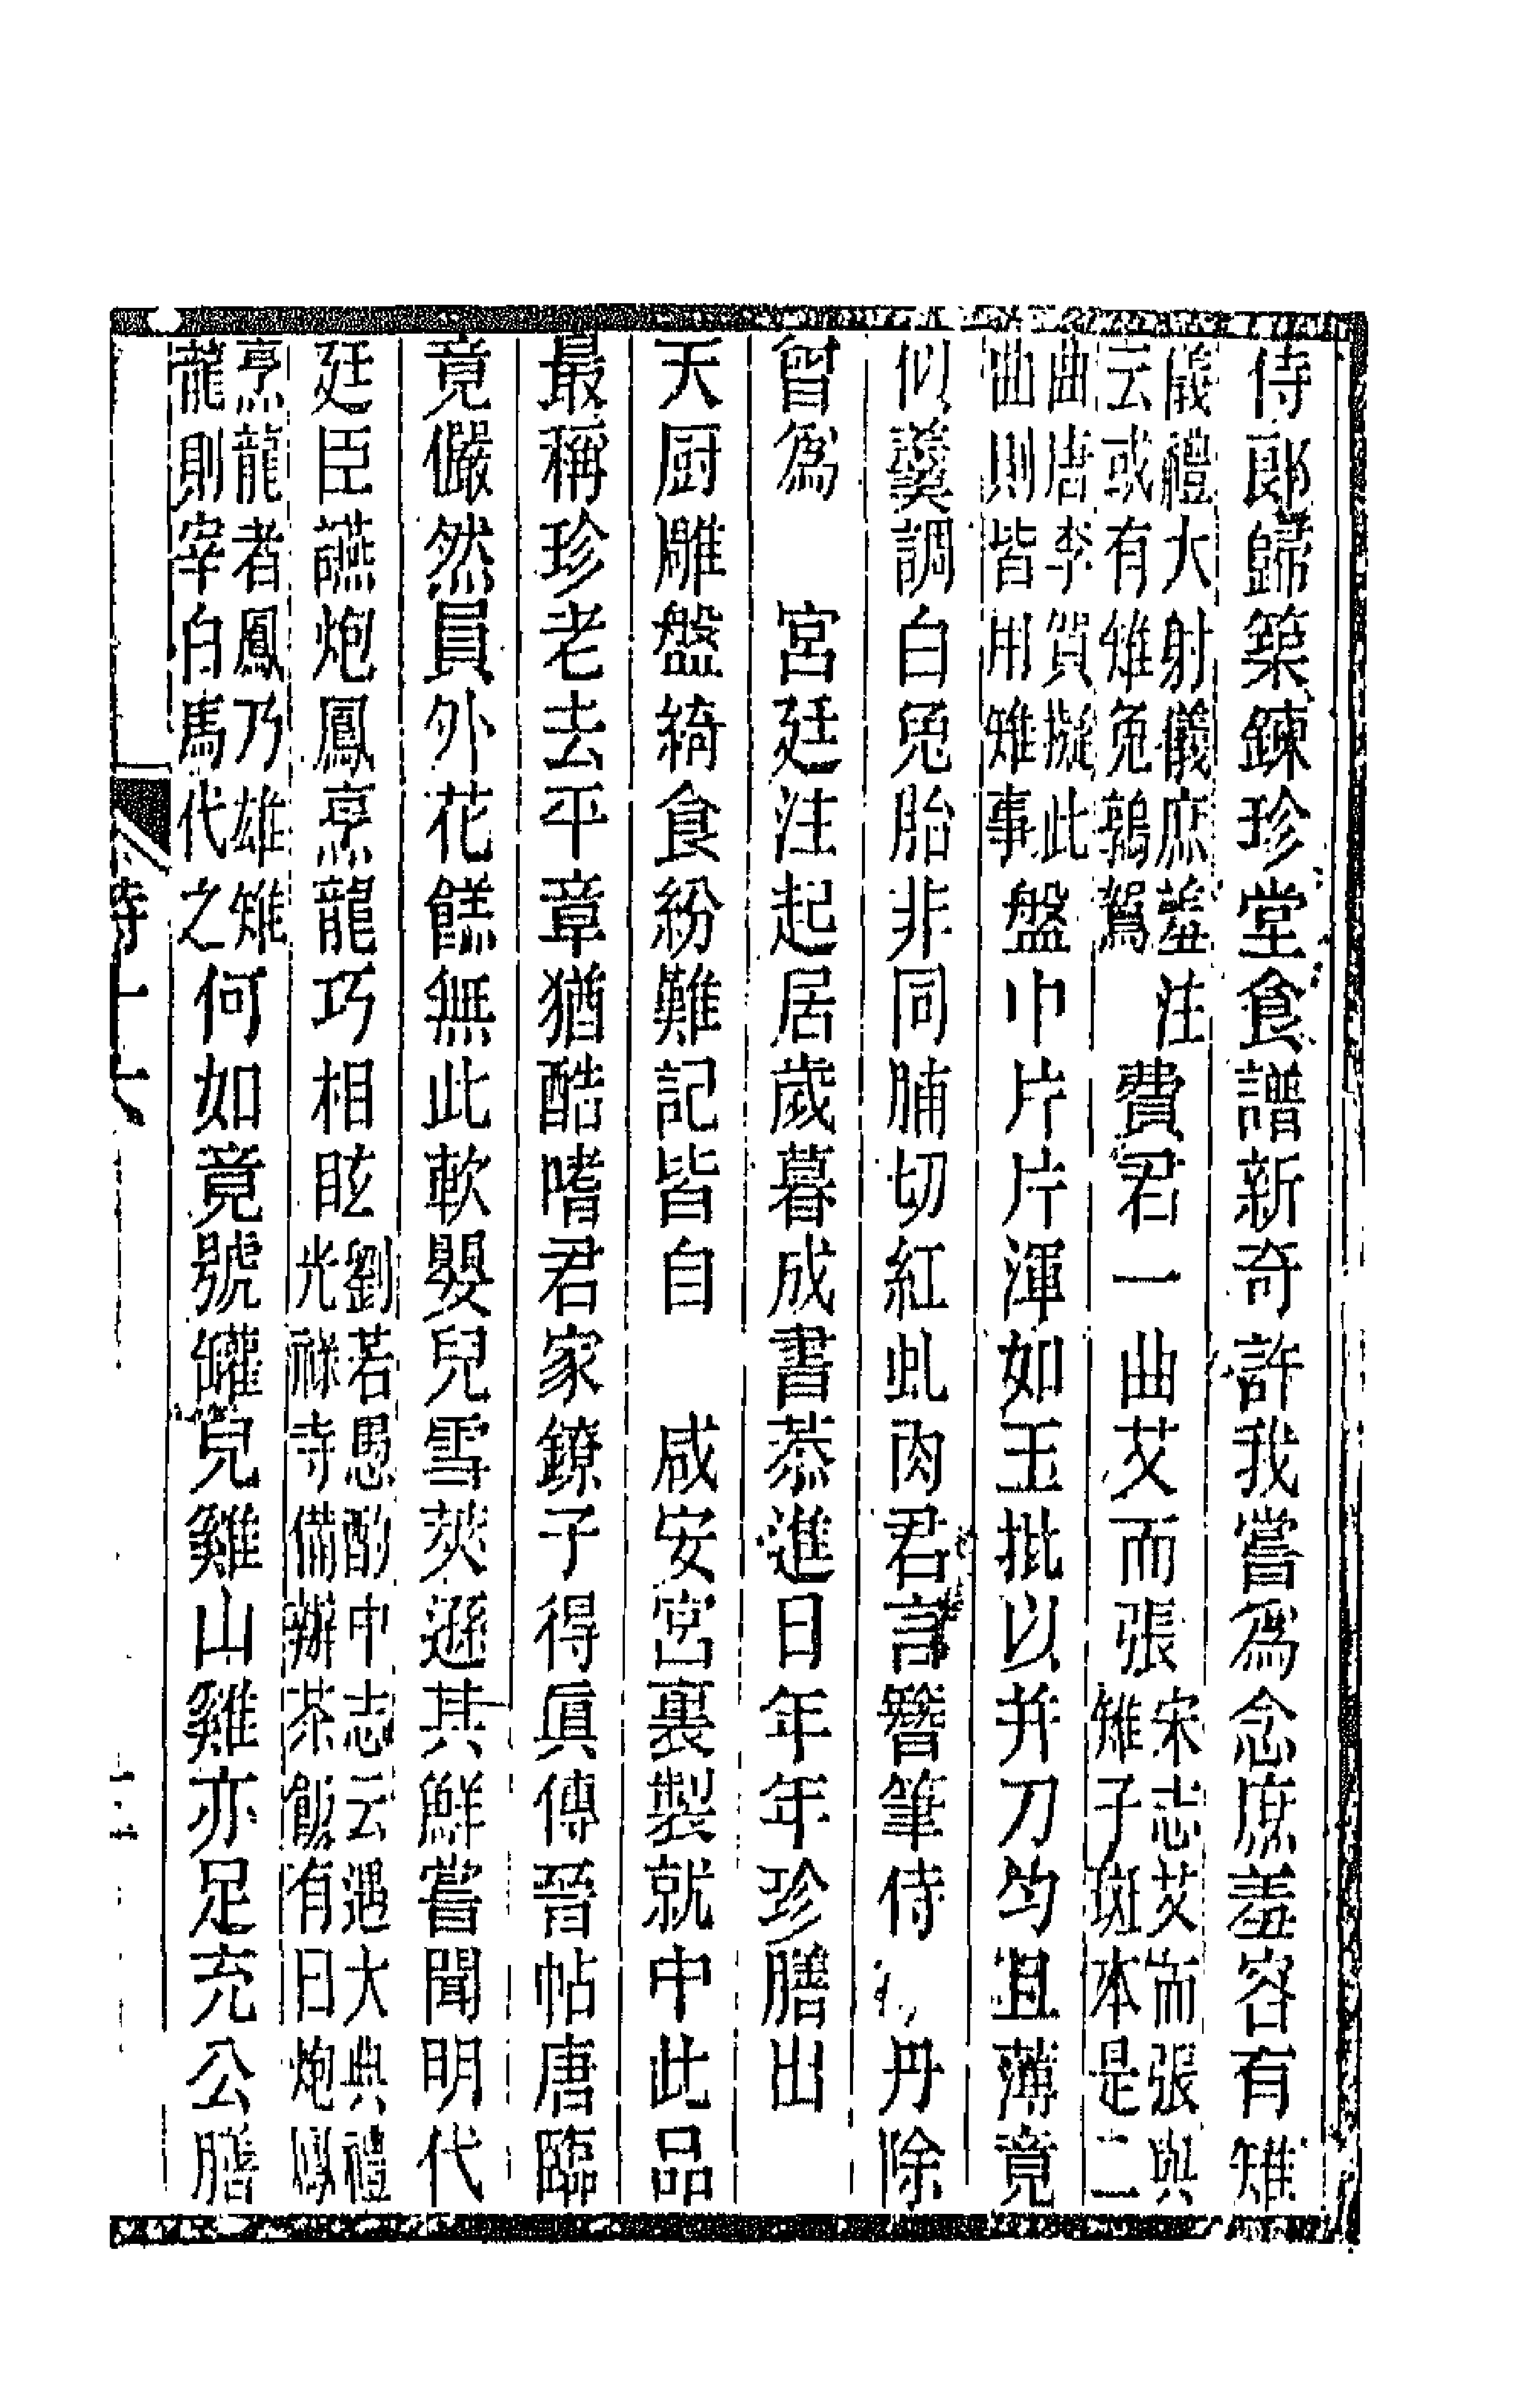 侍郎歸築鍊珍堂食譜新奇許我嘗爲念庶羞容有雉
儀禮大射儀庶羞注
云或有雉兔鶉鴽
費君一曲艾而張
宋志艾而張與
雉子斑本是二
曲唐李賀擬此
曲則皆用雉事
盤巾片片渾如玉批以并刀勻且薄竟
似羹調白兎胎非同脯切紅虬肉君言簪筆侍 丹除
曾爲 宮廷注起居歲暮成書恭進日年年珍膳出
天厨雕盤綺食紛難記皆自 咸安宮裏製就中此品
最稱珍老去平章猶酷嗜君家鐐子得眞傳晉帖唐臨
竟儼然員外花餻無此軟嬰兒雪莢遜其鮮嘗聞明代
廷臣讌炮鳳烹龍巧相眩
劉若愚酌中志云遇大典禮
光祿寺備辦茶飯有曰炮鳳
烹龍者鳳乃雄雉
龍則宰白馬代之
何如竟號罐兒雞山雞亦足充公膳
詩十六
二